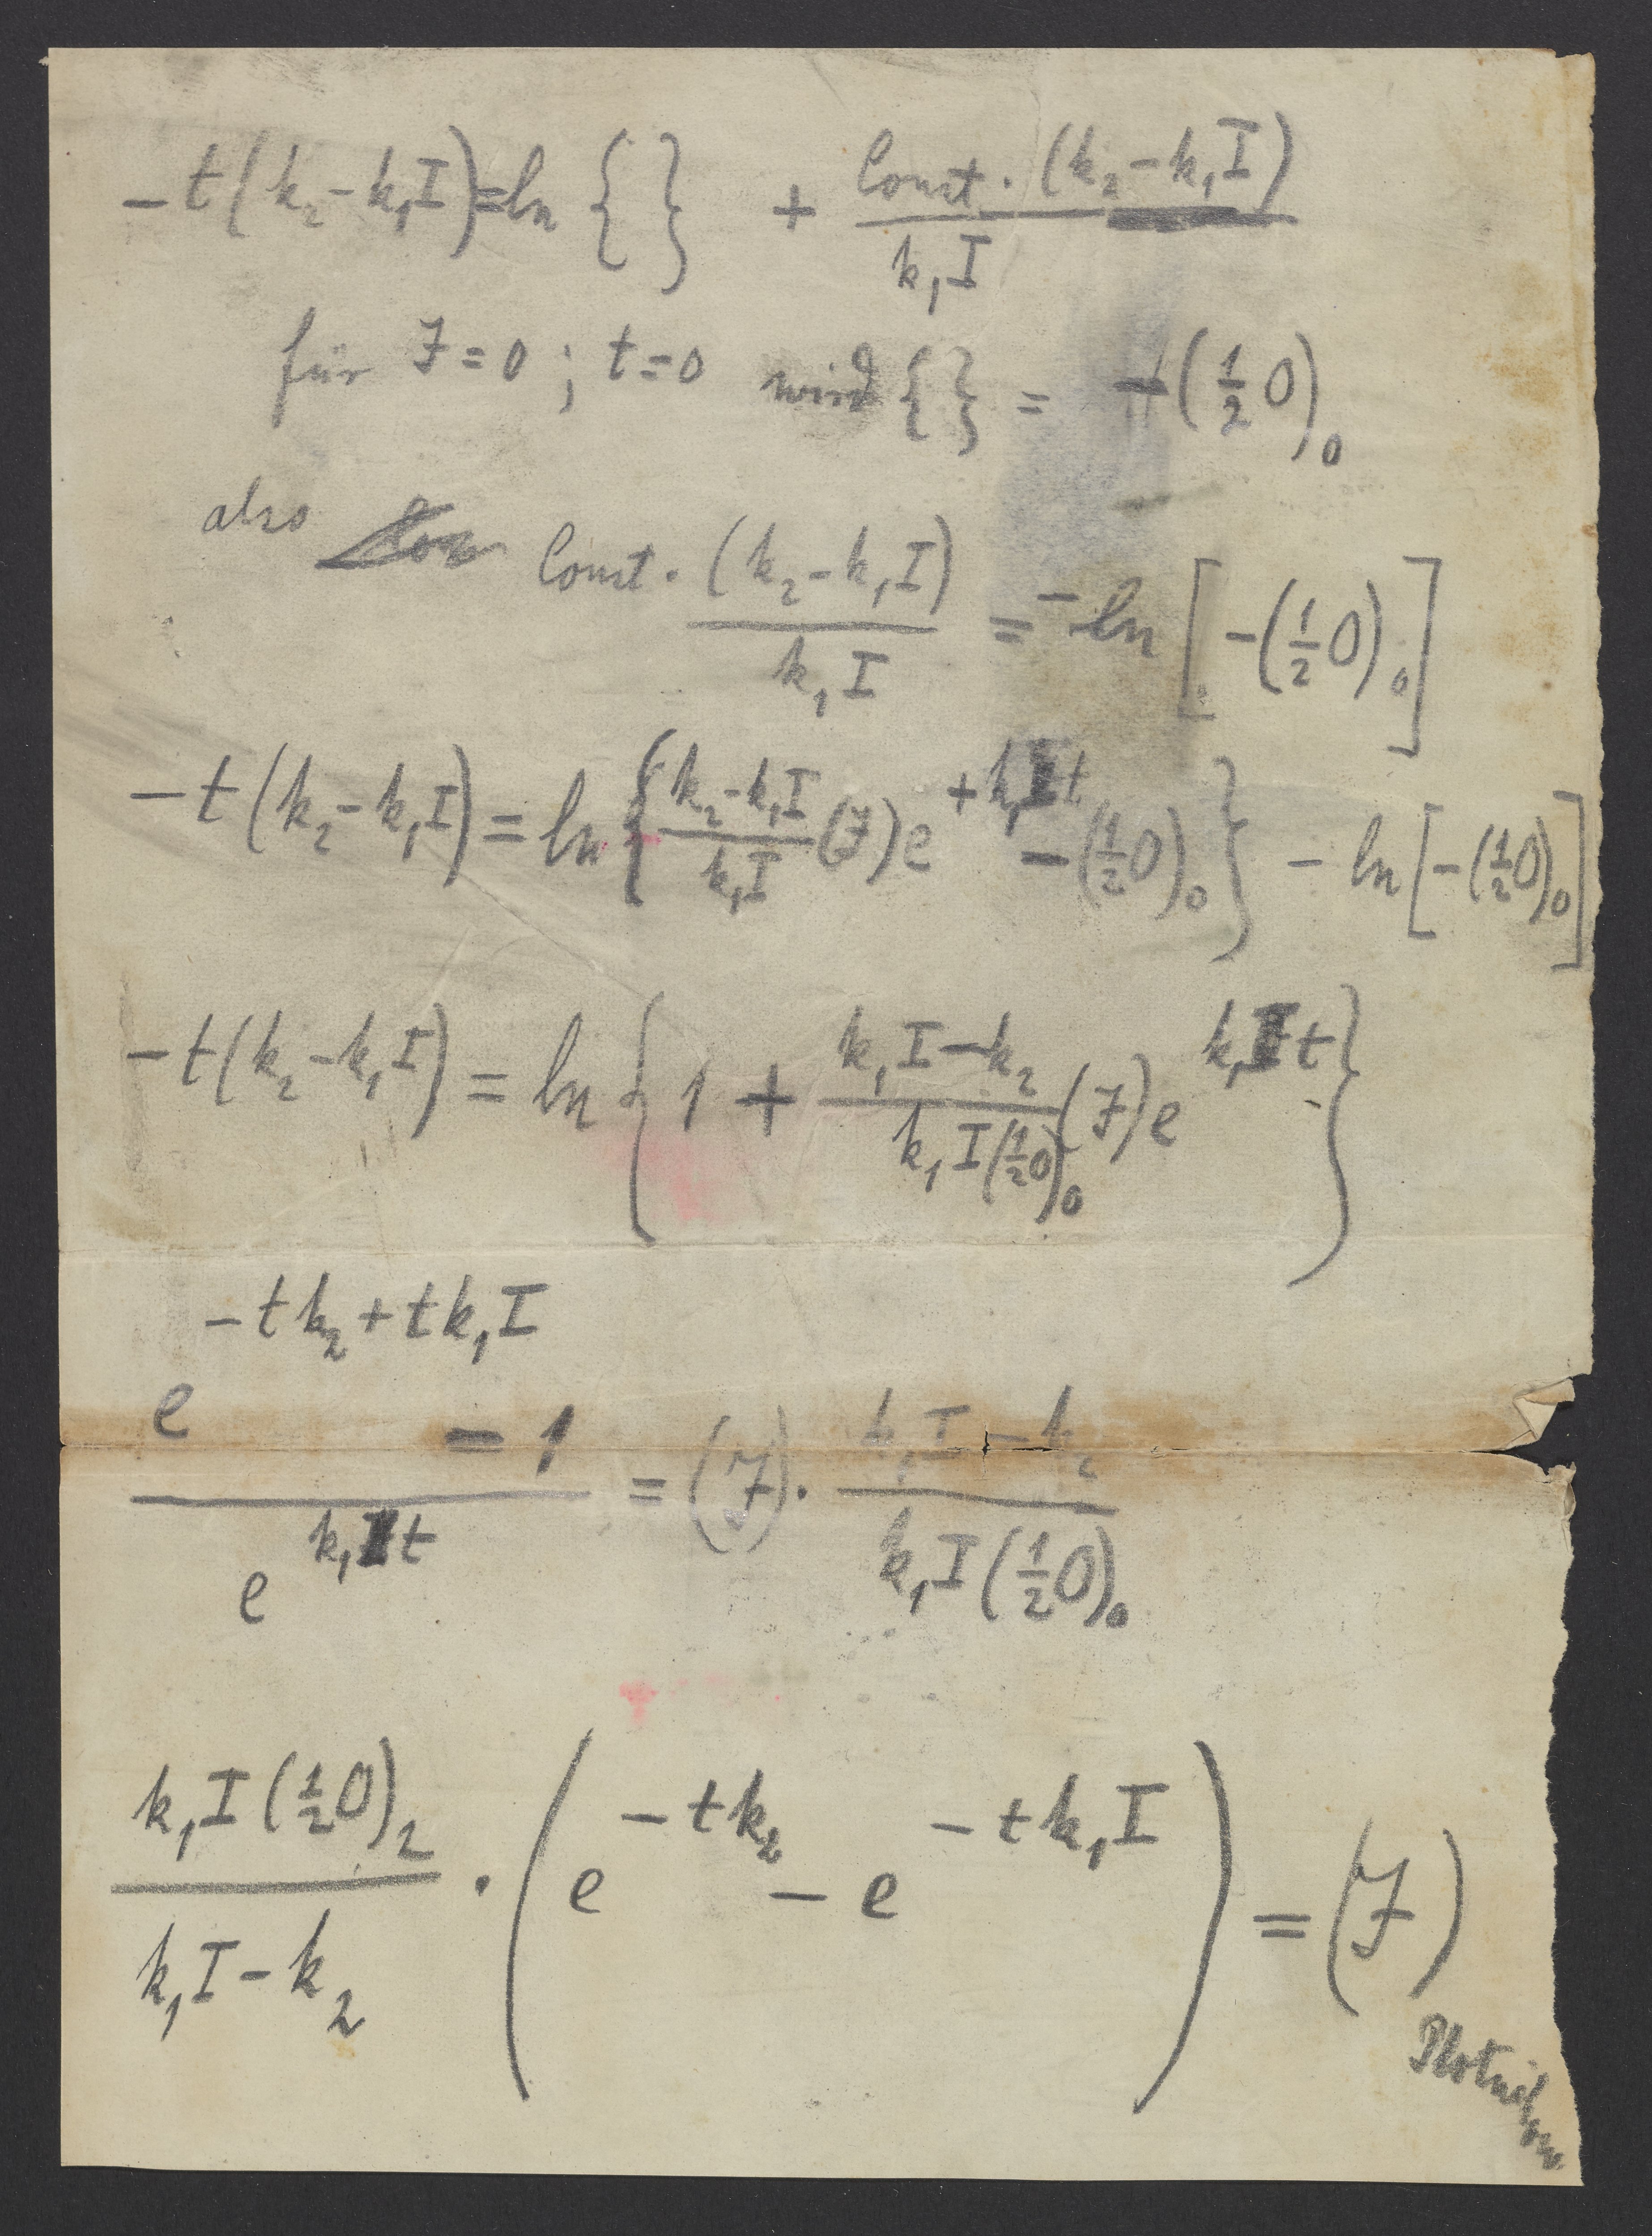 -t(k₂-k₁I)=ln { } + Const. (k₂-k₁I) / k₁I
für J=0 ; t=0 wird { } = -(½O)₀
also Const. (k₂-k₁I) / k₁I = -ln [-(½O)₀]
-t(k₂-k₁I) = ln { (k₂-k₁I) / k₁I (J) e^(+k₁It) -(½O)₀ } - ln[-(½O)₀]
-t(k₂-k₁I) = ln { 1 + (k₁I-k₂) / k₁I(½O)₀ (J) e^(k₁It) }
(e^(-tk₂+tk₁I) - 1) / e^(k₁It) = (J) . (k₁I-k₂) / k₁I(½O)₀
k₁I(½O)₂ / (k₁I-k₂) . (e^(-tk₂) - e^(-tk₁I)) = (J)